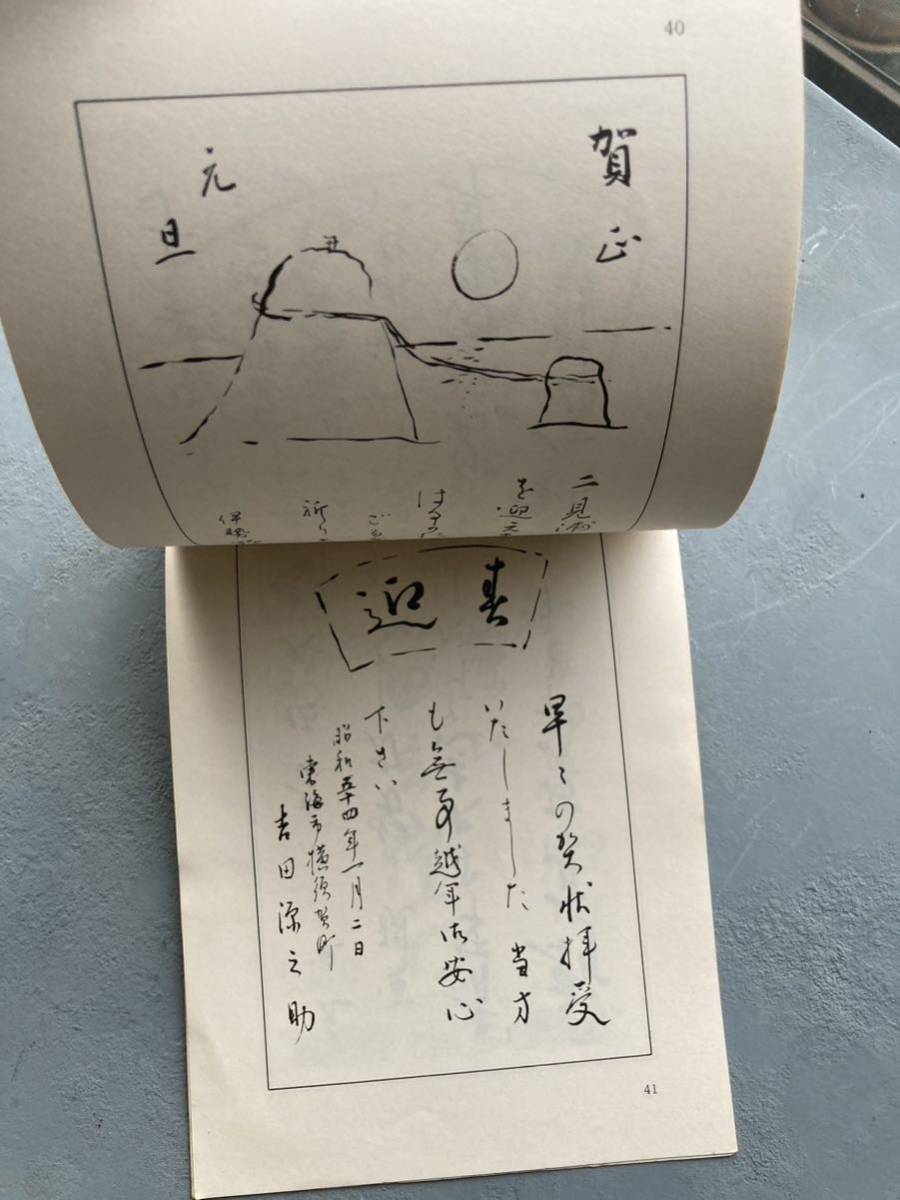 40
賀正
元旦
二見
を迎え
はるか
祈り
伊勢
春
迎
早々の賀状拝受
いたしました 当方
も無事越年御安心
下さい
昭和五十四年一月二日
東海市横須賀町
吉田源之助
41